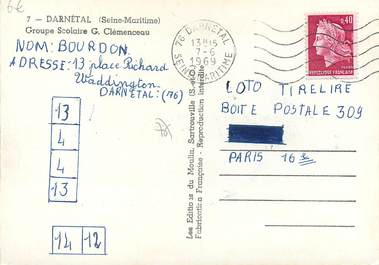 6€
7 - DARNÉTAL (Seine-Maritime)
Groupe Scolaire G. Clémenceau
NOM: BOURDON.
ADRESSE: 13 place Richard
Waddington
DARNÉTAL: (76)
13
4
4
13
14 12
76 DARNETAL
13H15
7-6
1969
SEINE MARITIME
0,40
REPUBLIQUE FRANÇAISE
Les Editions du Moulin, Sartrouville
Fabrication Française - Reproduction interdite
LOTO TIRELIRE
BOITE POSTALE 309
PARIS 16